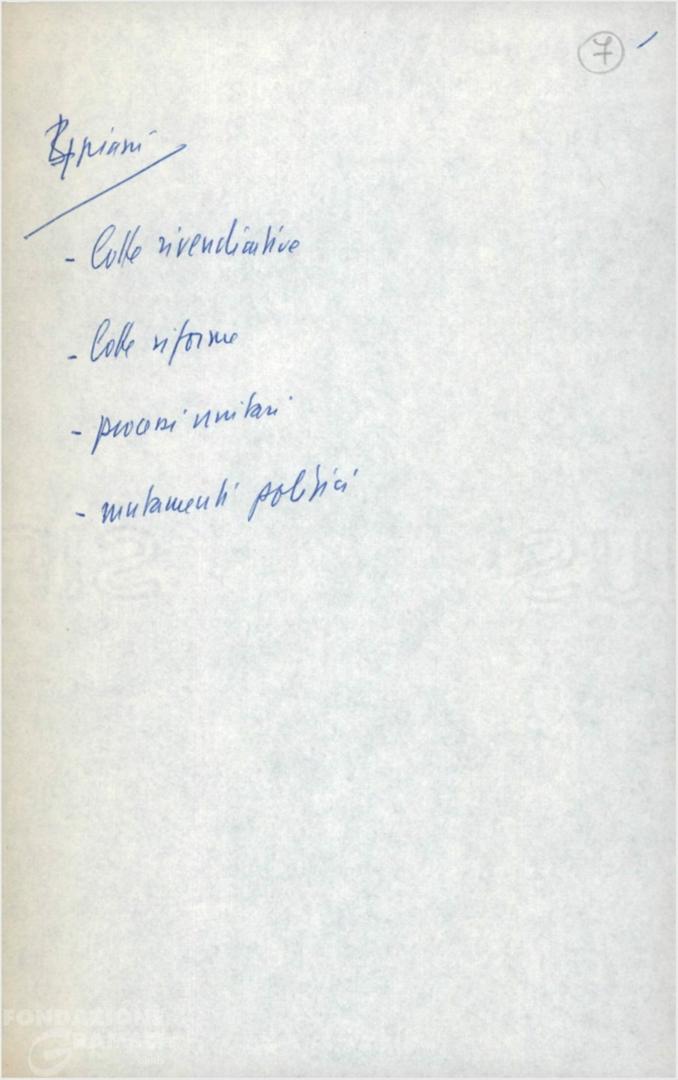 7
4 piani
- lotte rivendicative
- lotte riforme
- processi unitari
- mutamenti politici
FONDAZIONE
GRAMSCI